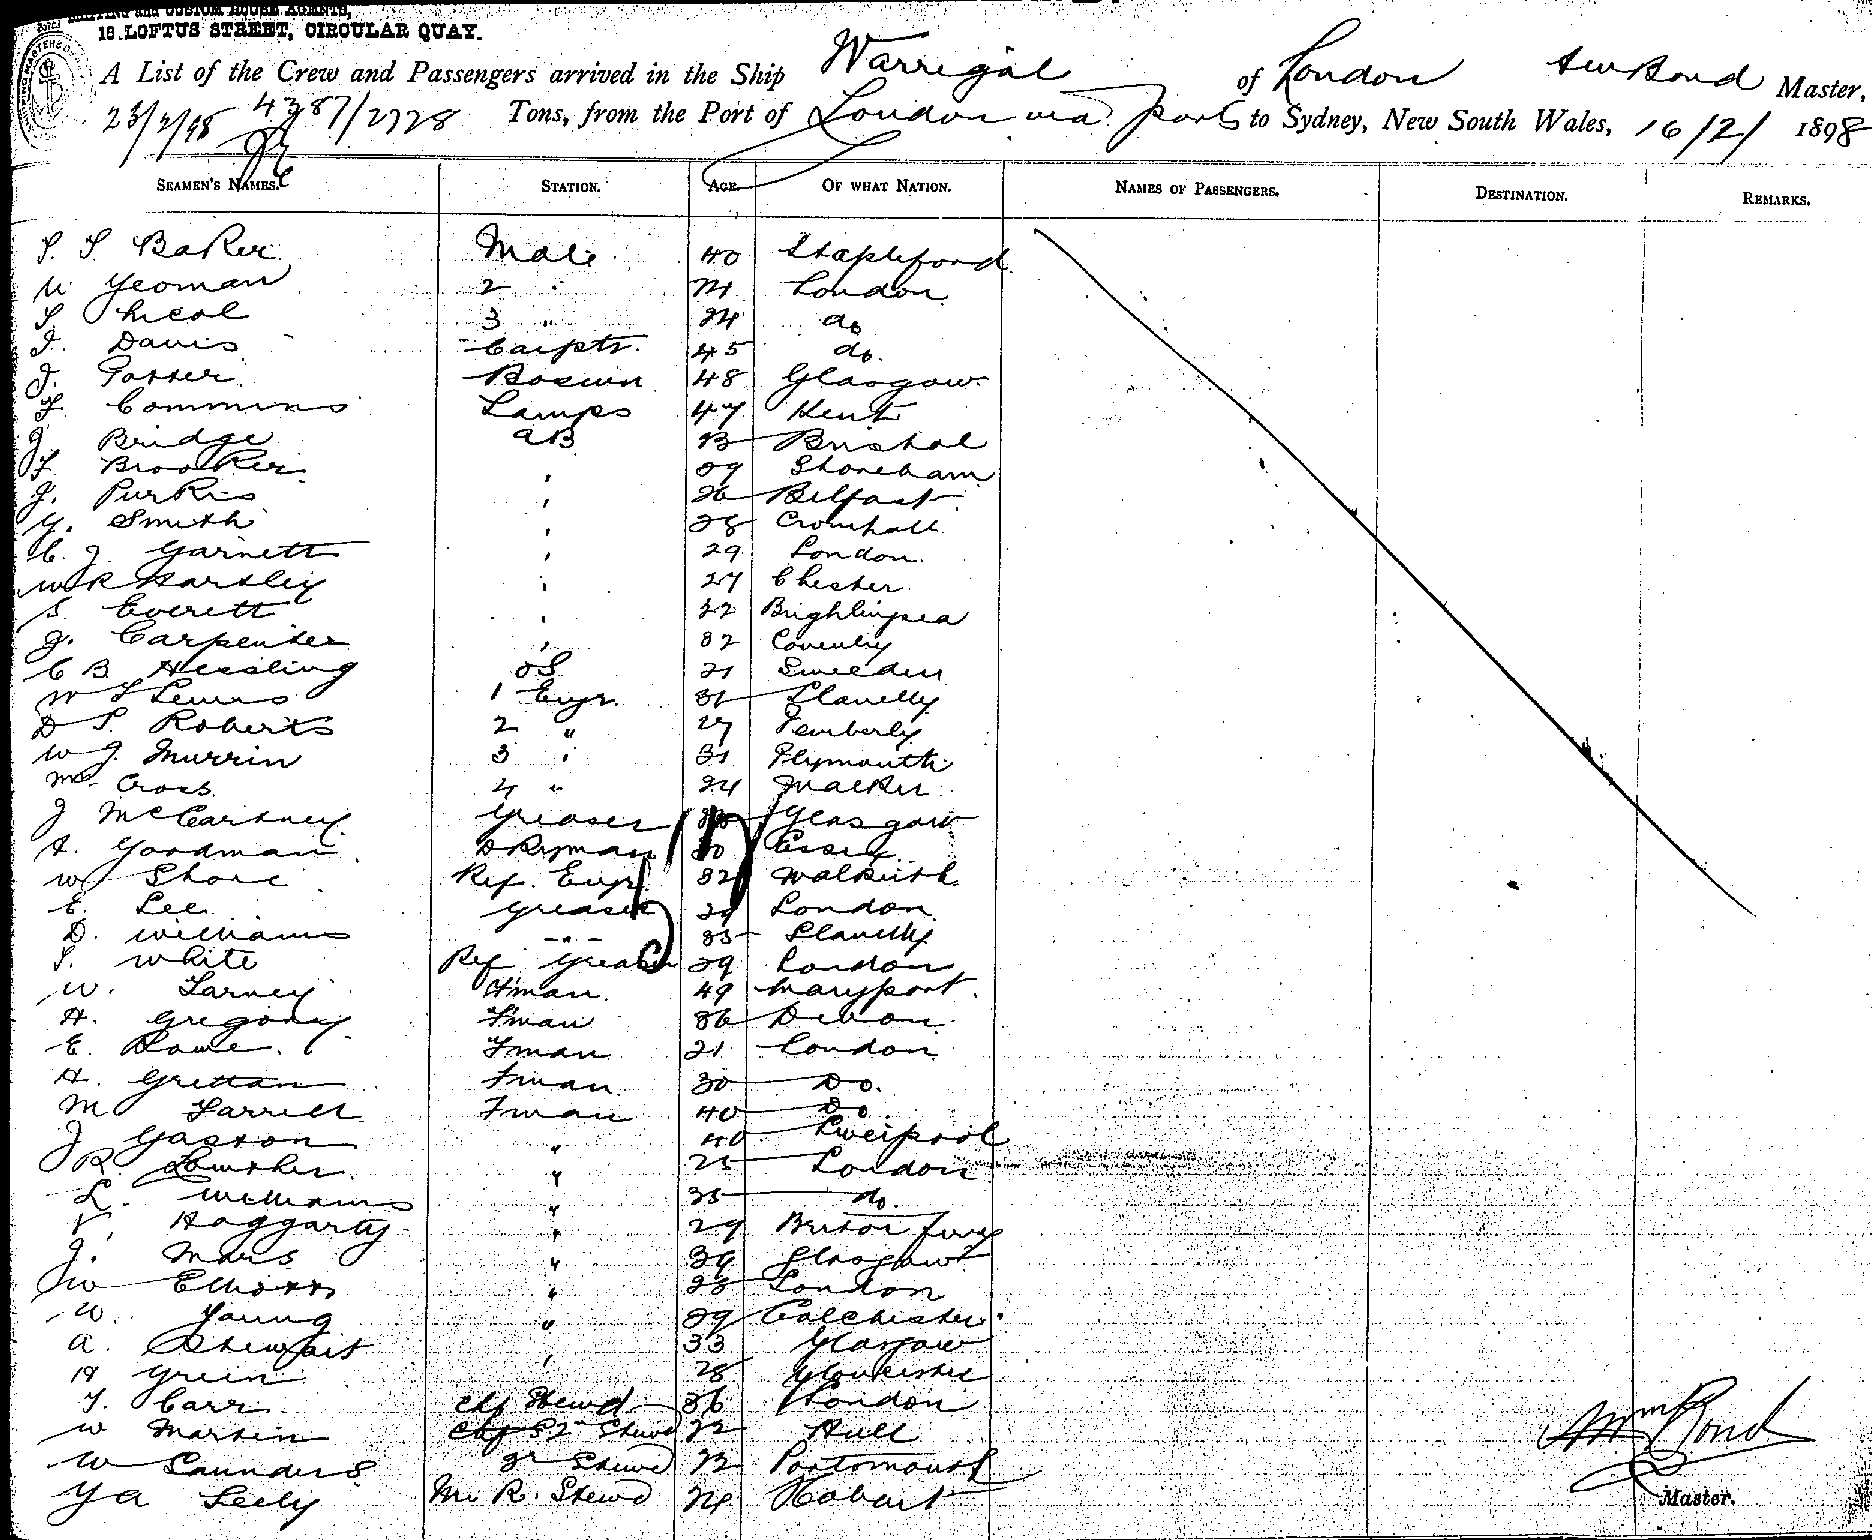 SHIPPING AND CUSTOM HOUSE AGENTS,
18 LOFTUS STREET, CIRCULAR QUAY.
A List of the Crew and Passengers arrived in the Ship Warrigal of London Bond Master,
23/2/98 4387/2728 Tons, from the Port of London via ports to Sydney, New South Wales, 16/2/ 1898
SEAMEN'S NAMES. STATION. AGE OF WHAT NATION. NAMES OF PASSENGERS. DESTINATION. REMARKS.
Baker Mate 40 Stapleford
Yeoman 2 " London
Nicol 3 " 24 do
Davis Carptr. 45 do.
Bosun 48 Glasgow
Commins Lamps 47 Kent
J. Bridge AB Bristol
Brooker 29 Shoreham
J. Purkis 26 Belfast
Smith 28 Cromhall
C. J. Garnett 29 London
W R Hartley 27 Chester
S. Everett 22 Brightlingsea
J. Carpenter 32 Coventry
C B Hessling OS 21 Sweden
W Lewis 1 Engr. 31 Llanelly
D Roberts 2 " 27 Pemberly
W J. Murrin 3 " 31 Plymouth
Cross 4 " 24 Walker
J McCartney Greaser Glasgow
A. Goodman Dkyman 30 Essex
W Shore Ref. Engr. 32
E. Lee Greaser 29 London
D. Williams -"- 35 Llanelly
White Ref Greaser 29 London
W. Fman. 49 Maryport.
H. Gregory Fman 36 Devon
E. Rowe. Fman 21 London
H. Grettan Fman 30 Do.
M Farrell Fman 40 Do
J Gaston " 40 Liverpool
R Lowther " 25 London
L. Williams " 35 do.
Haggarty " 29 Briton Ferry
J. Mars " 39 Glasgow
W Elliott " 28 London
W. Young " 29 Colchester
A. Stewart 33 Glasgow
H Green 28 Gloucester
Carr Chf Stewd 36 London
W Martin 2nd Stewd 22 Hull
W Saunders 3r Stewd Portsmouth
Seely M. R. Stewd 24 Hobart
Wm Bond
Master.